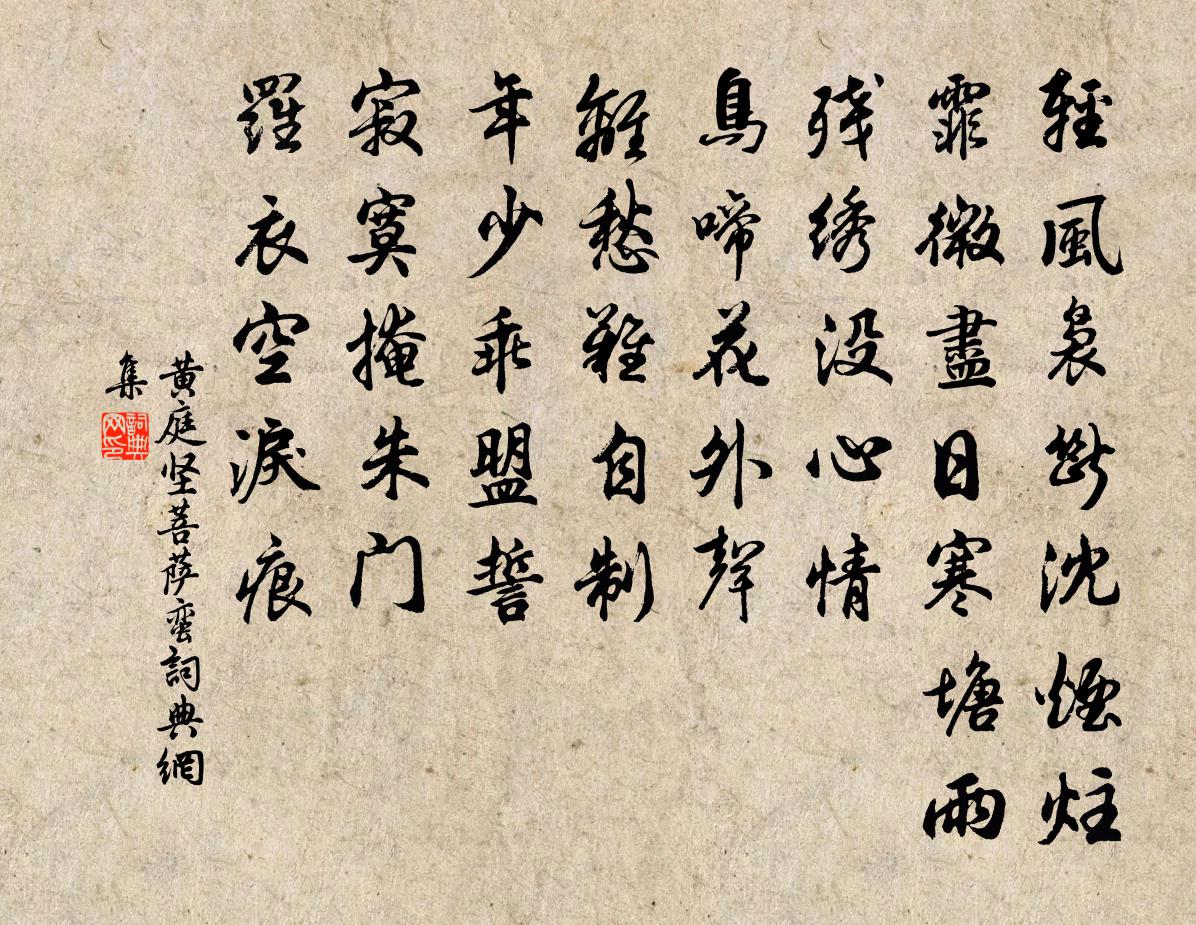 輕風裊斷沈煙炷
霏微盡日寒塘雨
残绣没心情
鳥啼花外聲
離愁難自制
年少乖盟誓
寂寞掩朱门
羅衣空淚痕
黄庭坚菩萨蛮詞典網
集
詞典
网印